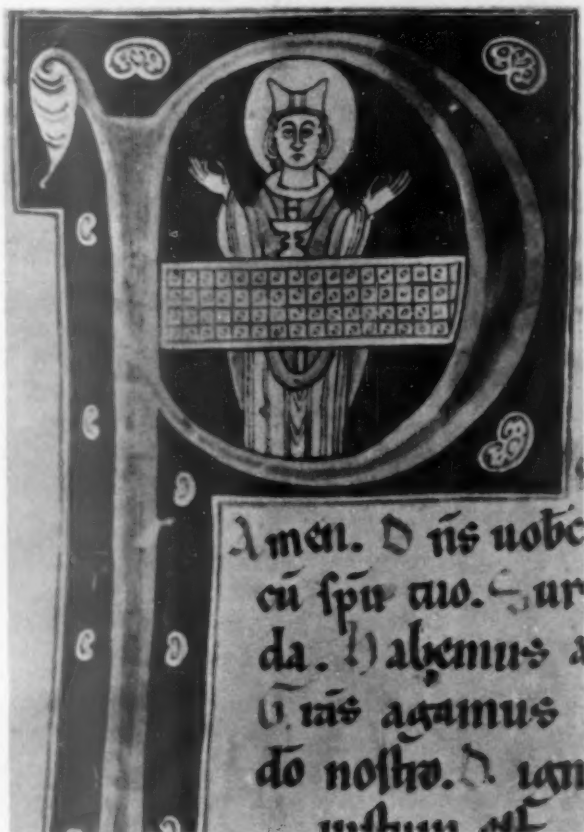 P
Amen. D n̄s uobc̄
cū sp̄u tuo. Sur
da. Habemus a
G rās agamus
dō nostro. D ign
iustum est